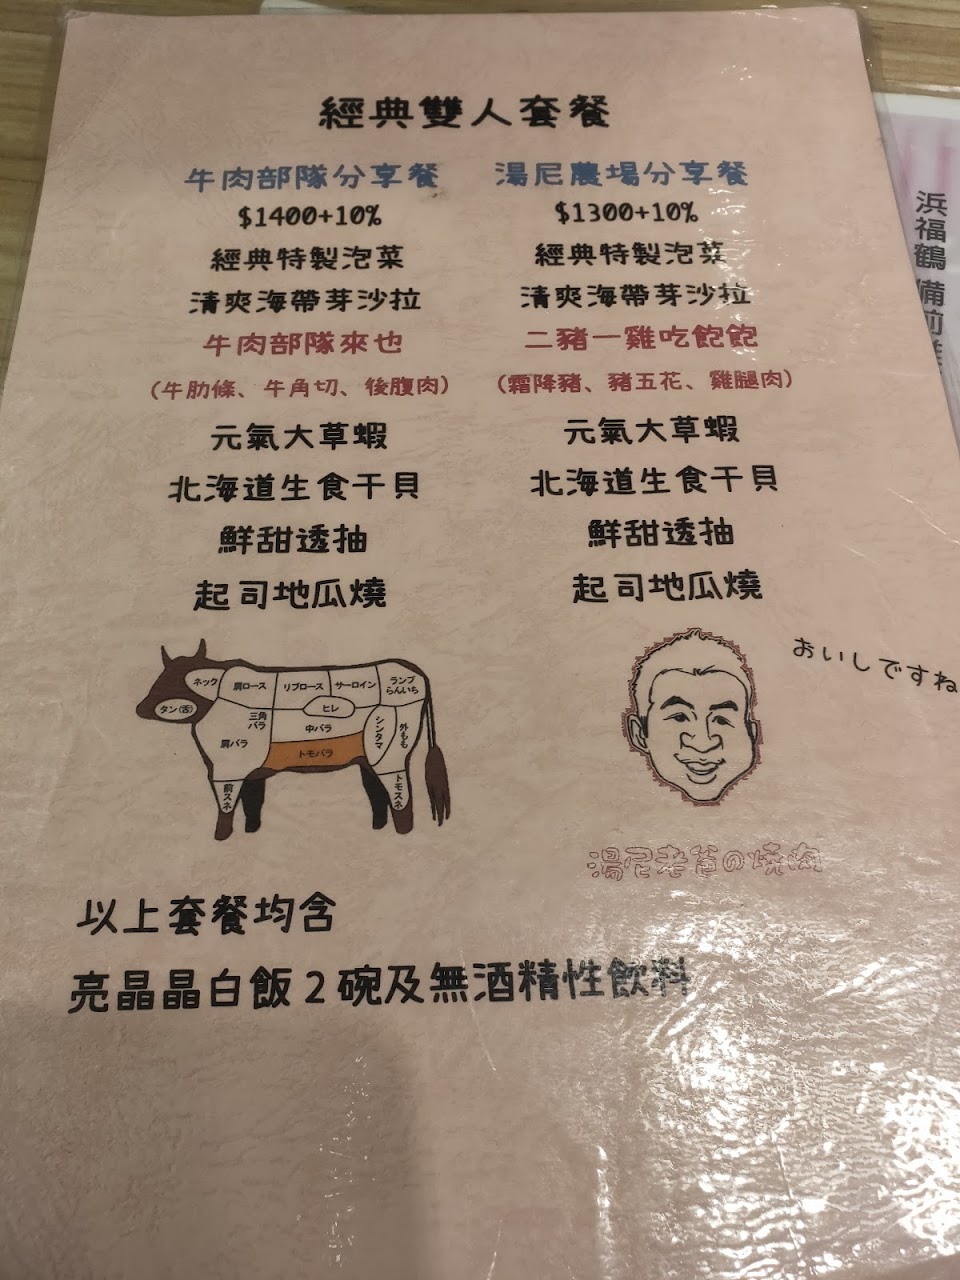 經典雙人套餐
牛肉部隊分享餐
$1400+10%
經典特製泡菜
清爽海帶芽沙拉
牛肉部隊來也
(牛肋條、牛角切、後腹肉)
元氣大草蝦
北海道生食干貝
鮮甜透抽
起司地瓜燒
湯尼農場分享餐
$1300+10%
經典特製泡菜
清爽海帶芽沙拉
二豬一雞吃飽飽
(霜降豬、豬五花、雞腿肉)
元氣大草蝦
北海道生食干貝
鮮甜透抽
起司地瓜燒
ネック
肩ロース
リブロース
サーロイン
ランプ
らんいち
タン(舌)
三角
バラ
ヒレ
肩バラ
中バラ
トモバラ
シンタマ
外もも
前スネ
トモスネ
おいしですね
湯尼老爸の燒肉
以上套餐均含
亮晶晶白飯2碗及無酒精性飲料
浜福鶴 備前